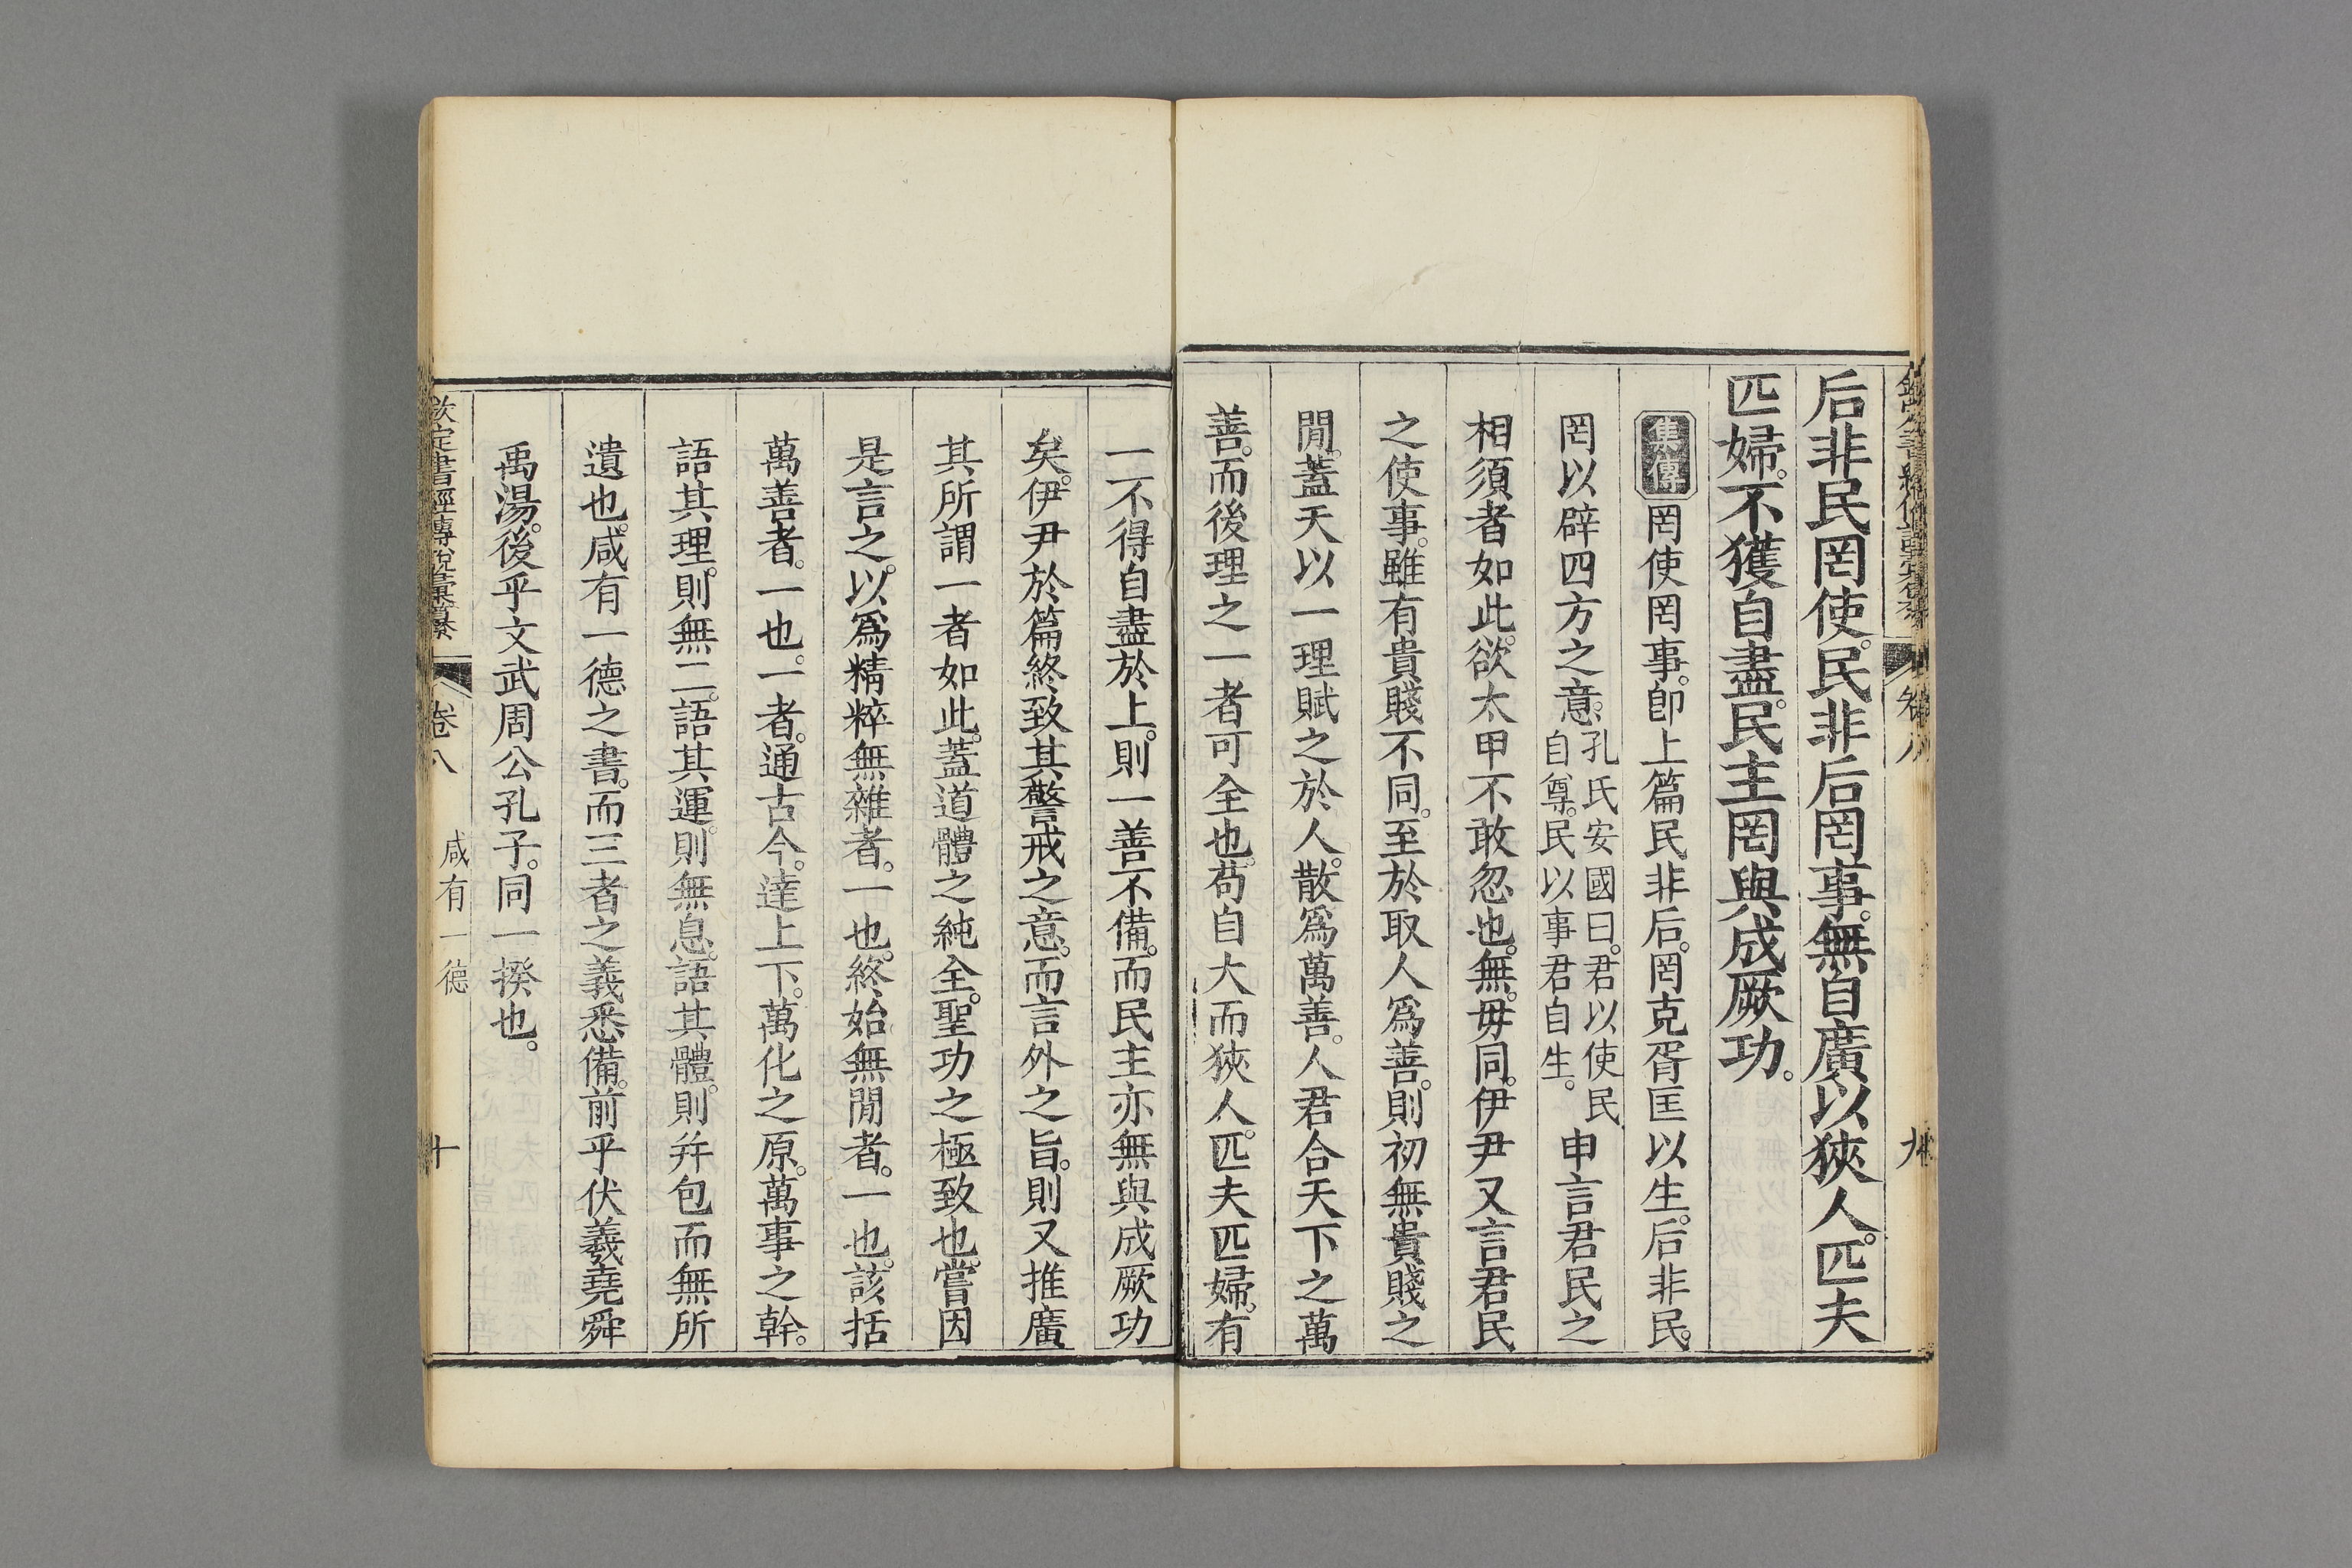 后非民罔使。民非后罔事。無自廣以狹人。匹夫
匹婦。不獲自盡。民主罔與成厥功。
集傳 罔使罔事。卽上篇民非后。罔克胥匡以生。后非民。
罔以辟四方之意。孔氏安國曰。君以使民自尊。民以事君自生。申言君民之
相須者如此。欲太甲不敢忽也。無。毋同。伊尹又言君民
之使事。雖有貴賤不同。至於取人爲善。則初無貴賤之
閒。蓋天以一理賦之於人。散爲萬善。人君合天下之萬
善。而後理之一者可全也。苟自大而狹人。匹夫匹婦。有
一不得自盡於上。則一善不備。而民主亦無與成厥功
矣。伊尹於篇終。致其警戒之意。而言外之旨。則又推廣
其所謂一者如此。蓋道體之純全。聖功之極致也。嘗因
是言之。以爲精粹無雜者。一也。終始無閒者。一也。該括
萬善者。一也。一者。通古今。達上下。萬化之原。萬事之幹。
語其理。則無二。語其運。則無息。語其體。則幷包而無所
遺也。咸有一德之書。而三者之義悉備。前乎伏羲堯舜
禹湯。後乎文武周公孔子。同一揆也。
欽定書經傳說彙纂 卷八 咸有一德 十